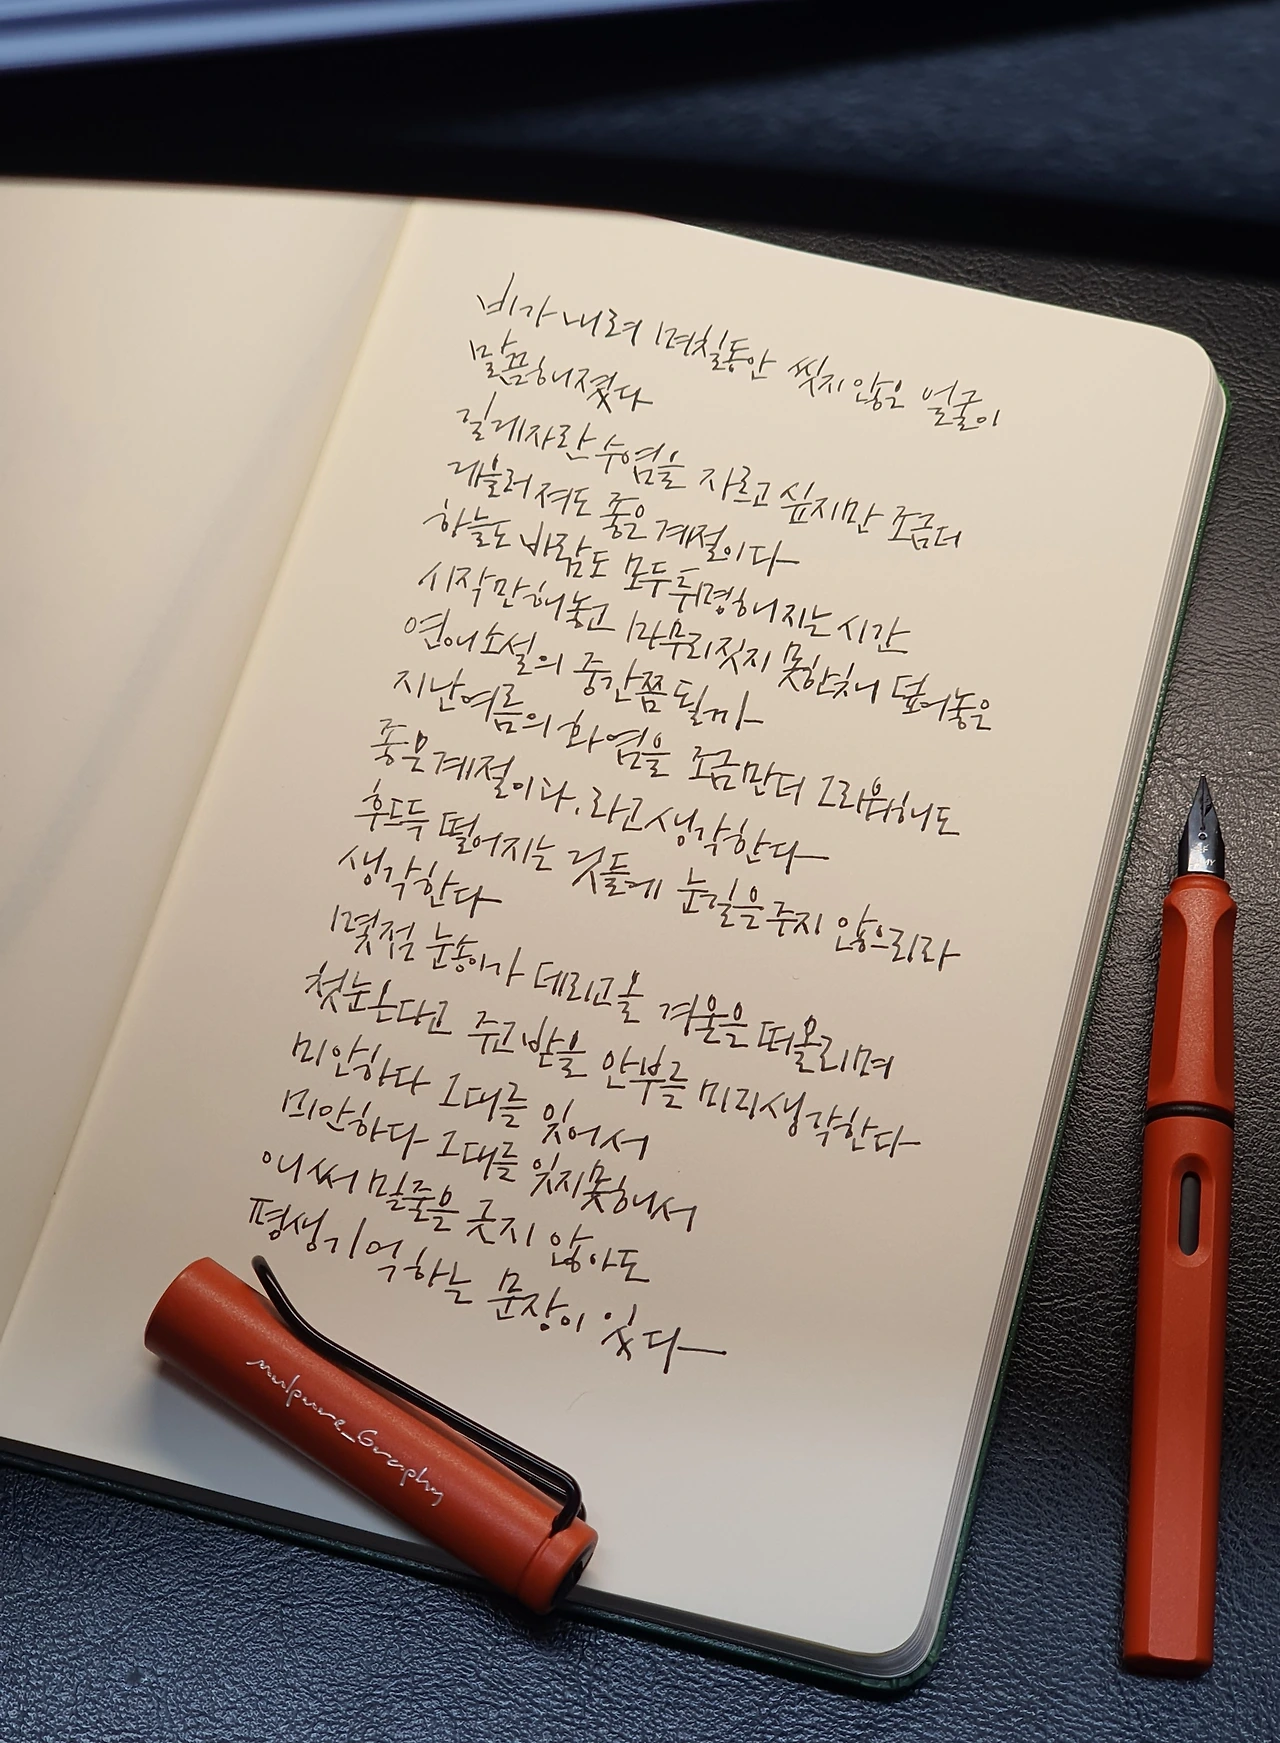 비가 내려 며칠동안 씻지 않은 얼굴이
말끔해졌다
길게 자란 수염을 자르고 싶지만 조금 더
게을러져도 좋은 계절이다
하늘도 바람도 모두 투명해지는 시간
시작만 해놓고 마무리 짓지 못한 채 덮어놓은
연애소설의 중간쯤 될까
지난 여름의 화염을 조금만 더 그리워해도
좋은 계절이다. 라고 생각한다
후드득 떨어지는 것들에 눈길을 주지 않으리라
생각한다
몇 점 눈송이가 데리고 올 겨울을 떠올리며
첫눈 온다고 주고 받을 안부를 미리 생각한다
미안하다 그대를 잊어서
미안하다 그대를 잊지 못해서
애써 밑줄을 긋지 않아도
평생 기억하는 문장이 있다
_Graphy